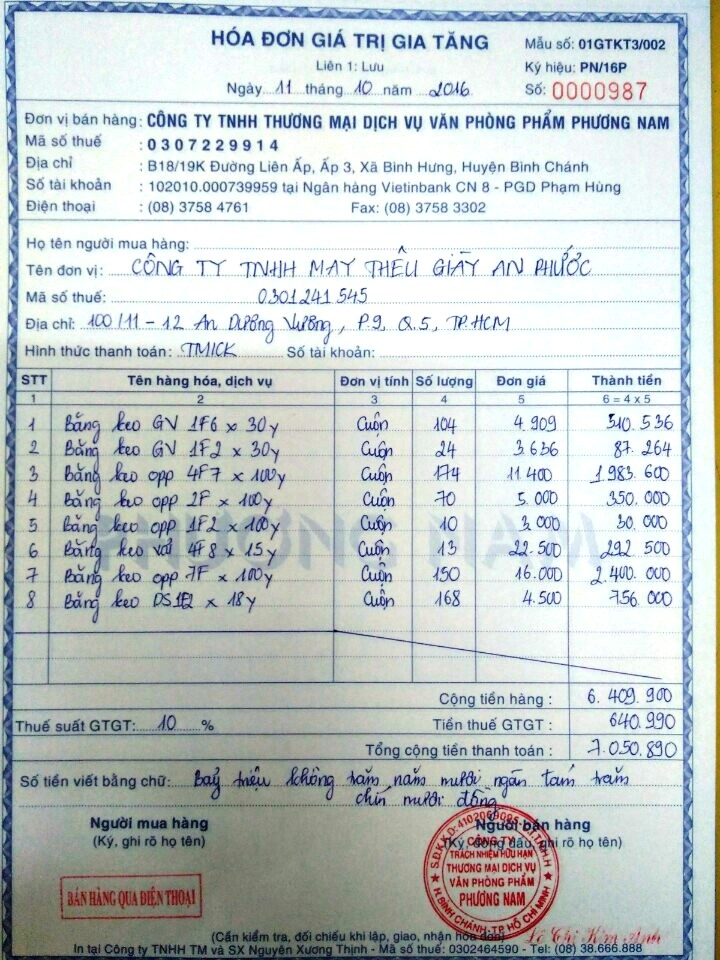 HÓA ĐƠN GIÁ TRỊ GIA TĂNG
Mẫu số: 01GTKT3/002
Liên 1: Lưu
Ký hiệu: PN/16P
Ngày 11 tháng 10 năm 2016
Số: 0000987
Đơn vị bán hàng: CÔNG TY TNHH THƯƠNG MẠI DỊCH VỤ VĂN PHÒNG PHẨM PHƯƠNG NAM
Mã số thuế : 0307229914
Địa chỉ : B18/19K Đường Liên Ấp, Ấp 3, Xã Bình Hưng, Huyện Bình Chánh
Số tài khoản : 102010.000739959 tại Ngân hàng Vietinbank CN 8 - PGD Phạm Hùng
Điện thoại : (08) 3758 4761 Fax: (08) 3758 3302
Họ tên người mua hàng:
Tên đơn vị: CÔNG TY TNHH MAY THÊU GIÀY AN PHƯỚC
Mã số thuế: 0301241545
Địa chỉ: 100/11-12 An Dương Vương, P.9, Q.5, TP.HCM
Hình thức thanh toán: TM/CK Số tài khoản:
STT Tên hàng hóa, dịch vụ Đơn vị tính Số lượng Đơn giá Thành tiền
1 2 3 4 5 6 = 4 x 5
1 Băng keo GV 1F6 x 30y Cuộn 104 4.909 510.536
2 Băng keo GV 1F2 x 30y Cuộn 24 3.636 87.264
3 Băng keo opp 4F7 x 100y Cuộn 174 11.400 1.983.600
4 Băng keo opp 2F x 100y Cuộn 70 5.000 350.000
5 Băng keo opp 1F2 x 100y Cuộn 10 3.000 30.000
6 Băng keo vải 4F8 x 15y Cuộn 13 22.500 292.500
7 Băng keo opp 7F x 100y Cuộn 150 16.000 2.400.000
8 Băng keo DS1F2 x 18y Cuộn 168 4.500 756.000
PHƯƠNG NAM
Cộng tiền hàng : 6.409.900
Thuế suất GTGT: 10 % Tiền thuế GTGT : 640.990
Tổng cộng tiền thanh toán : 7.050.890
Số tiền viết bằng chữ: Bảy triệu không trăm năm mươi ngàn tám trăm
chín mươi đồng
Người mua hàng Người bán hàng
(Ký, ghi rõ họ tên) (Ký, đóng dấu, ghi rõ họ tên)
S.Đ.K.K.D: 4102069095
CÔNG TY
TRÁCH NHIỆM HỮU HẠN
THƯƠNG MẠI DỊCH VỤ
VĂN PHÒNG PHẨM
PHƯƠNG NAM
H. BÌNH CHÁNH - TP HỒ CHÍ MINH
BÁN HÀNG QUA ĐIỆN THOẠI
Lê Thị Kim Anh
(Cần kiểm tra, đối chiếu khi lập, giao, nhận hóa đơn)
In tại Công ty TNHH TM và SX Nguyên Xương Thịnh - Mã số thuế: 0302464590 - Tel: (08) 38.666.888